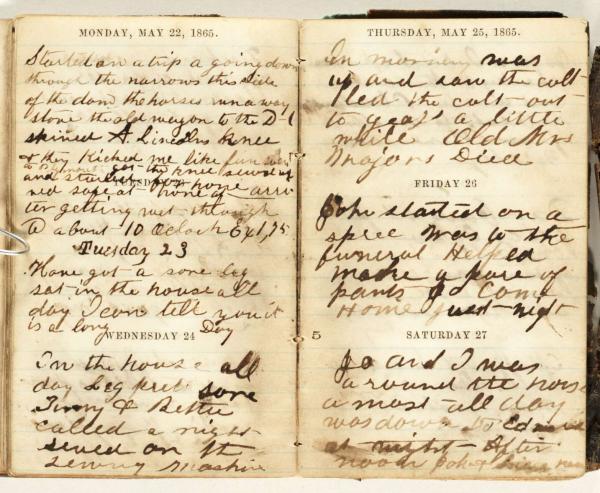 MONDAY, MAY 22, 1865.
Started on a trip a going down
through the narrows this side
of the dam the horses run a way
stove the old wagon to the D l
skined A. Lincolns knee
& they kicked me like fun
got the knee sewed up
and started for home
TUESDAY
ned safe at home
ter getting wet through
a about 10 Oclock
Tuesday 23
Have got a sore leg
sat in the house all
day I can tell you it
is a long Day
WEDNESDAY 24
In the house all
day Leg sore
Jinny & Bettie
called a night
sewed on the
sewing mashine
THURSDAY, MAY 25, 1865.
In morning was
up and saw the colt
I led the colt out
to grass a little
while Old Mrs
Majors Died
FRIDAY 26
John started on a
spree was to the
funeral Helped
make a pare of
pants Jo Come
Home just night
5
SATURDAY 27
Jo and I was
around the house
a most all day
was down to
at night After
noon